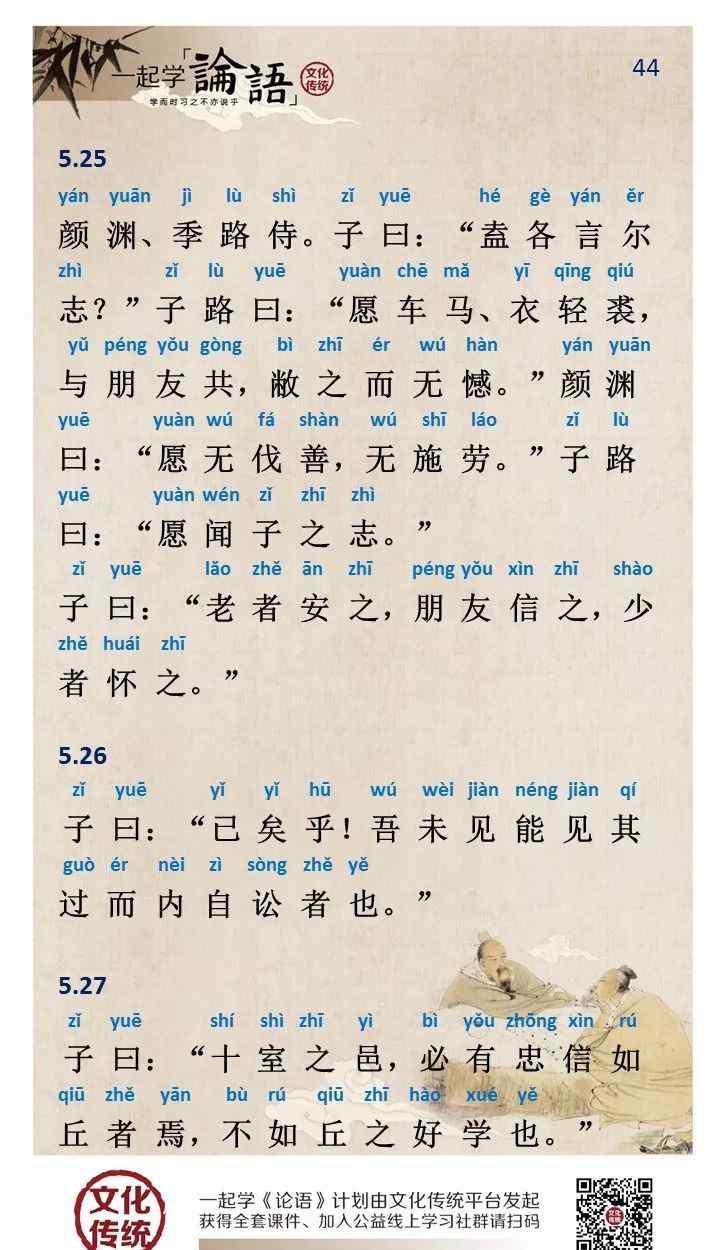 一起学「論語」
文化传统
学而时习之不亦说乎
44
5.25
yán yuān jì lù shì zǐ yuē hé gè yán ěr
颜渊、季路侍。子曰：“盍各言尔
zhì zǐ lù yuē yuàn chē mǎ yī qīng qiú
志？”子路曰：“愿车马、衣轻裘，
yǔ péng yǒu gòng bì zhī ér wú hàn yán yuān
与朋友共，敝之而无憾。”颜渊
yuē yuàn wú fá shàn wú shī láo zǐ lù
曰：“愿无伐善，无施劳。”子路
yuē yuàn wén zǐ zhī zhì
曰：“愿闻子之志。”
zǐ yuē lǎo zhě ān zhī péng yǒu xìn zhī shào
子曰：“老者安之，朋友信之，少
zhě huái zhī
者怀之。”
5.26
zǐ yuē yǐ yǐ hū wú wèi jiàn néng jiàn qí
子曰：“已矣乎！吾未见能见其
guò ér nèi zì sòng zhě yě
过而内自讼者也。”
5.27
zǐ yuē shí shì zhī yì bì yǒu zhōng xìn rú
子曰：“十室之邑，必有忠信如
qiū zhě yān bù rú qiū zhī hào xué yě
丘者焉，不如丘之好学也。”
文化传统
一起学《论语》计划由文化传统平台发起
获得全套课件、加入公益线上学习社群请扫码